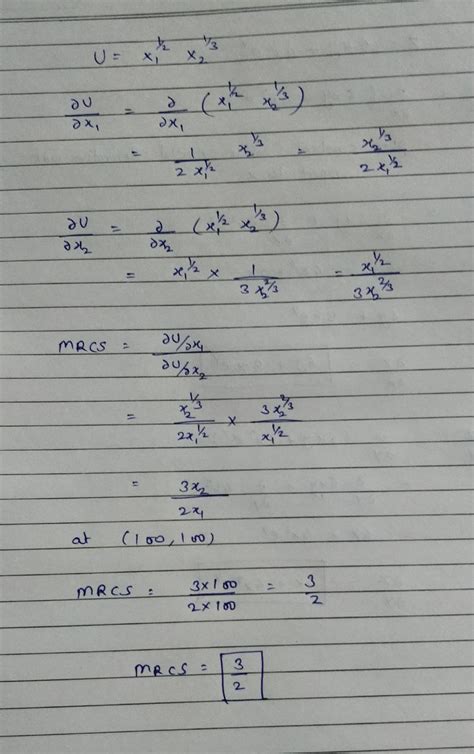 U = x₁^1/2 x₂^1/3
∂U/∂x₁ = ∂/∂x₁ (x₁^1/2 x₂^1/3)
= 1/2x₁^1/2 x₂^1/3 = x₂^1/3/2x₁^1/2
∂U/∂x₂ = ∂/∂x₂ (x₁^1/2 x₂^1/3)
= x₁^1/2 × 1/3x₂^2/3 = x₁^1/2/3x₂^2/3
MRCS = ∂U/∂x₁/∂U/∂x₂
= x₂^1/3/2x₁^1/2 × 3x₂^2/3/x₁^1/2
= 3x₂/2x₁
at (100, 100)
MRCS = 3×100/2×100 = 3/2
MRCS = 3/2